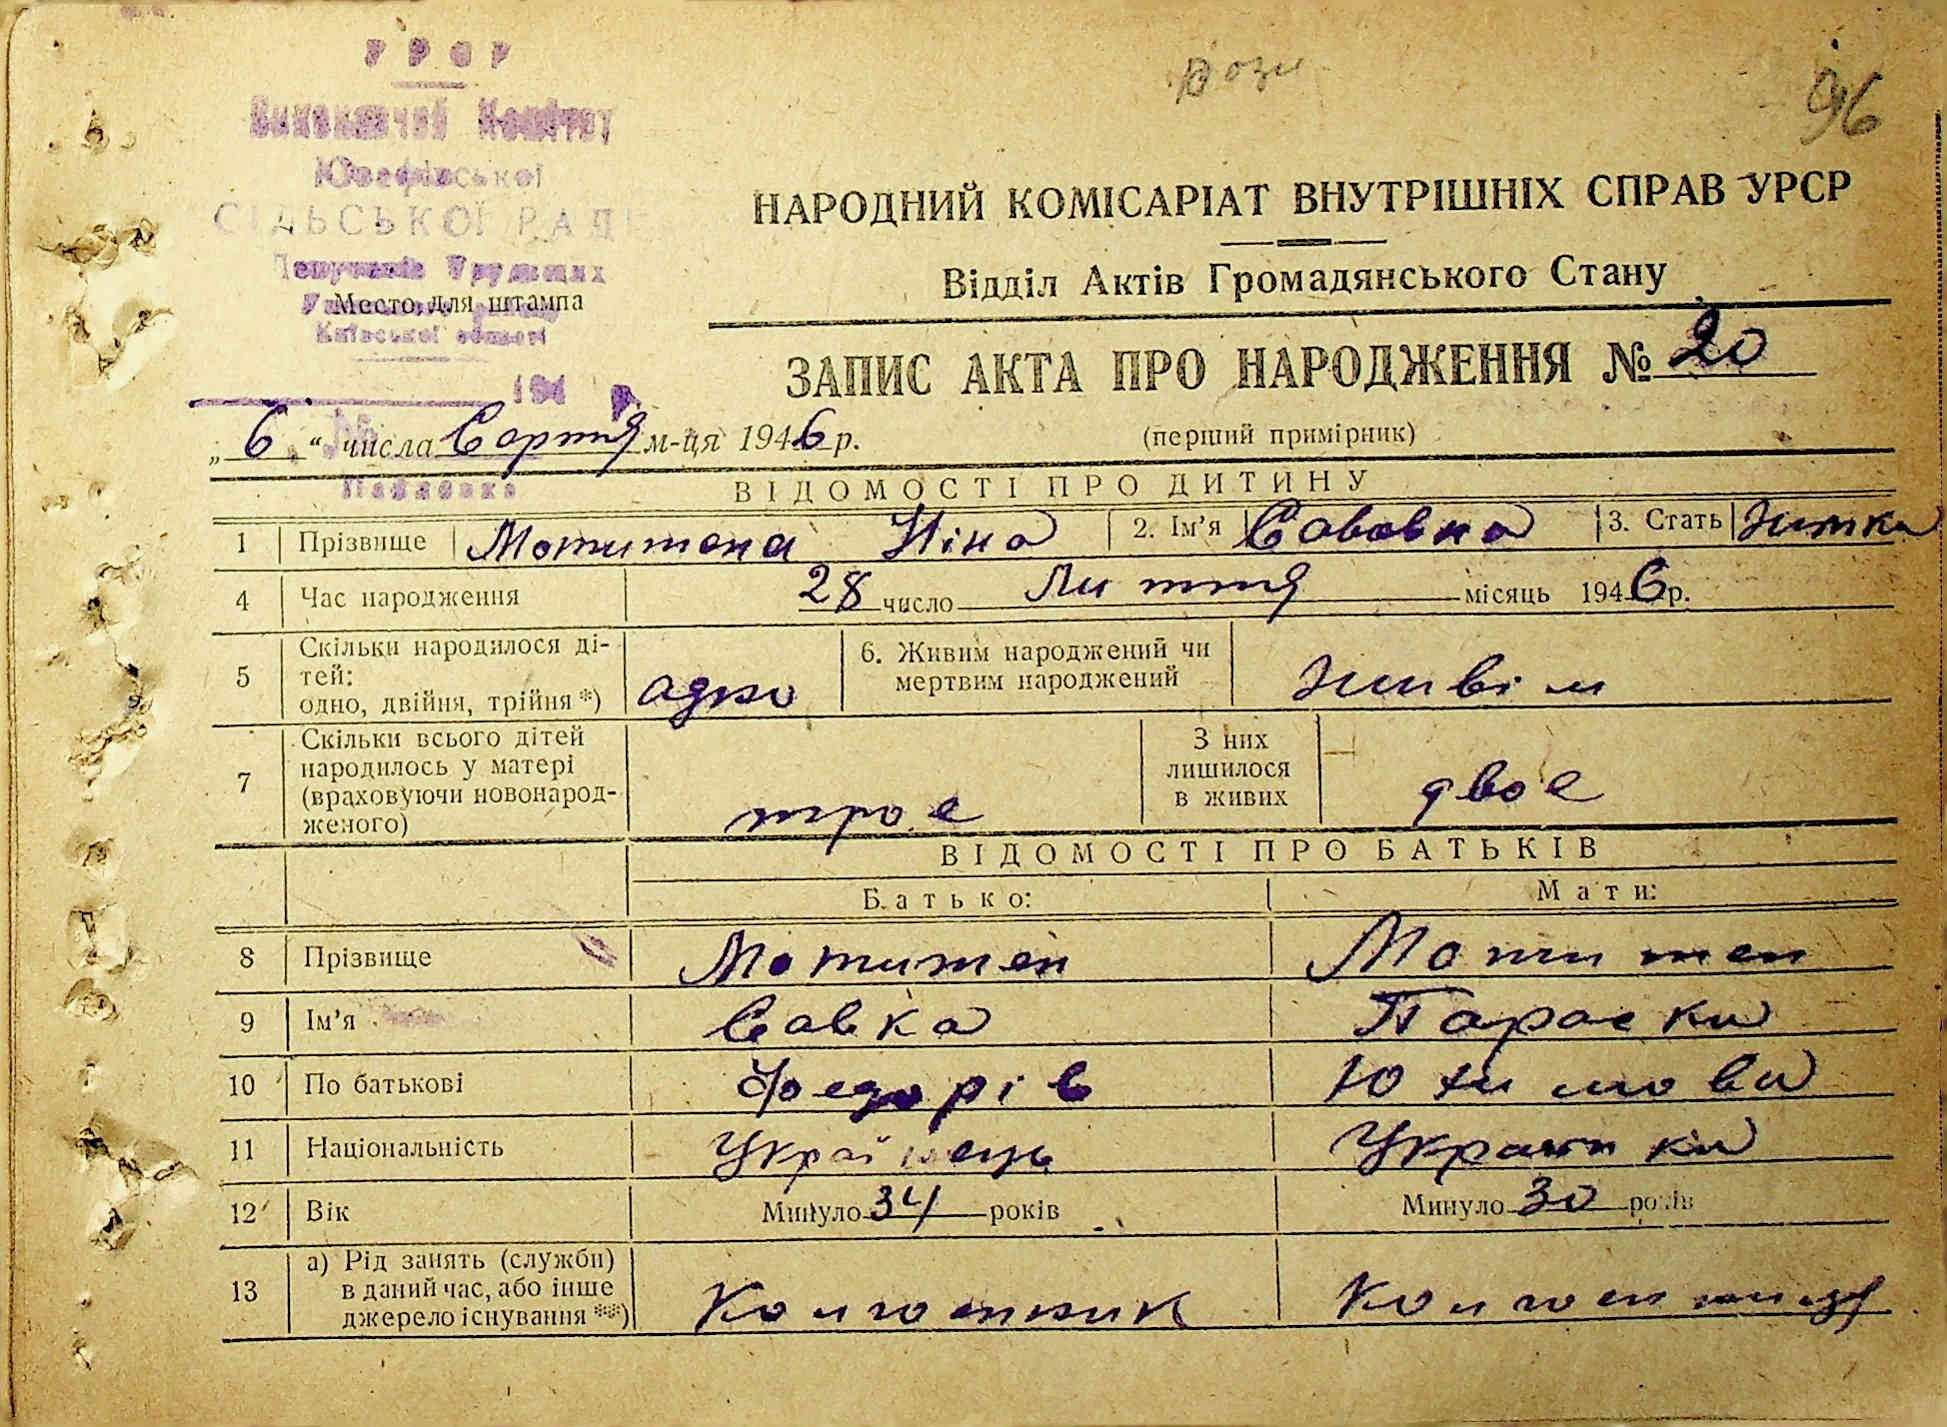 УРСР
Виконавчий Комітет
Юзефівської
СІЛЬСЬКОЇ РАД
Трудящих
Место для штампа
Київської області
194
96
НАРОДНИЙ КОМІСАРІАТ ВНУТРІШНІХ СПРАВ УРСР
Відділ Актів Громадянського Стану
ЗАПИС АКТА ПРО НАРОДЖЕННЯ № 20
„6“ числа Серпня м-ця 1946 р.
(перший примірник)
ВІДОМОСТІ ПРО ДИТИНУ
1 Прізвище Ніна 2. Ім'я Савовна 3. Стать жінка
4 Час народження 28 число Липня місяць 1946 р.
5 Скільки народилося ді-
тей:
одно, двійня, трійня *) адно
6. Живим народжений чи
мертвим народжений живім
7 Скільки всього дітей
народилось у матері
(враховуючи новонарод-
женого) троє
З них
лишилося
в живих двоє
ВІДОМОСТІ ПРО БАТЬКІВ
Батько: Мати:
8 Прізвище
9 Ім'я Савка Параска
10 По батькові Федорів Юхимова
11 Національність Українець Українка
12 Вік Минуло 34 років Минуло 30 років
13 а) Рід занять (служби)
в даний час, або інше
джерело існування **) Колгоспник Колгоспниця